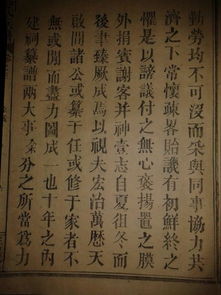 勤勞均不可沒而杂與同事協力共
濟之下常懷疎畧貽譏有初鮮終之
懼是以謗議付之無心褒揚置之膜
外捐賓謝客幷神壹志自夏徂冬而
後聿臻厥成為以視夫宏治萬歷天
啟間諸公或纂于任或修于家者不
無或閒而盡力圖成一也十年之內
建祠纂譜兩大事杂分之所當為力